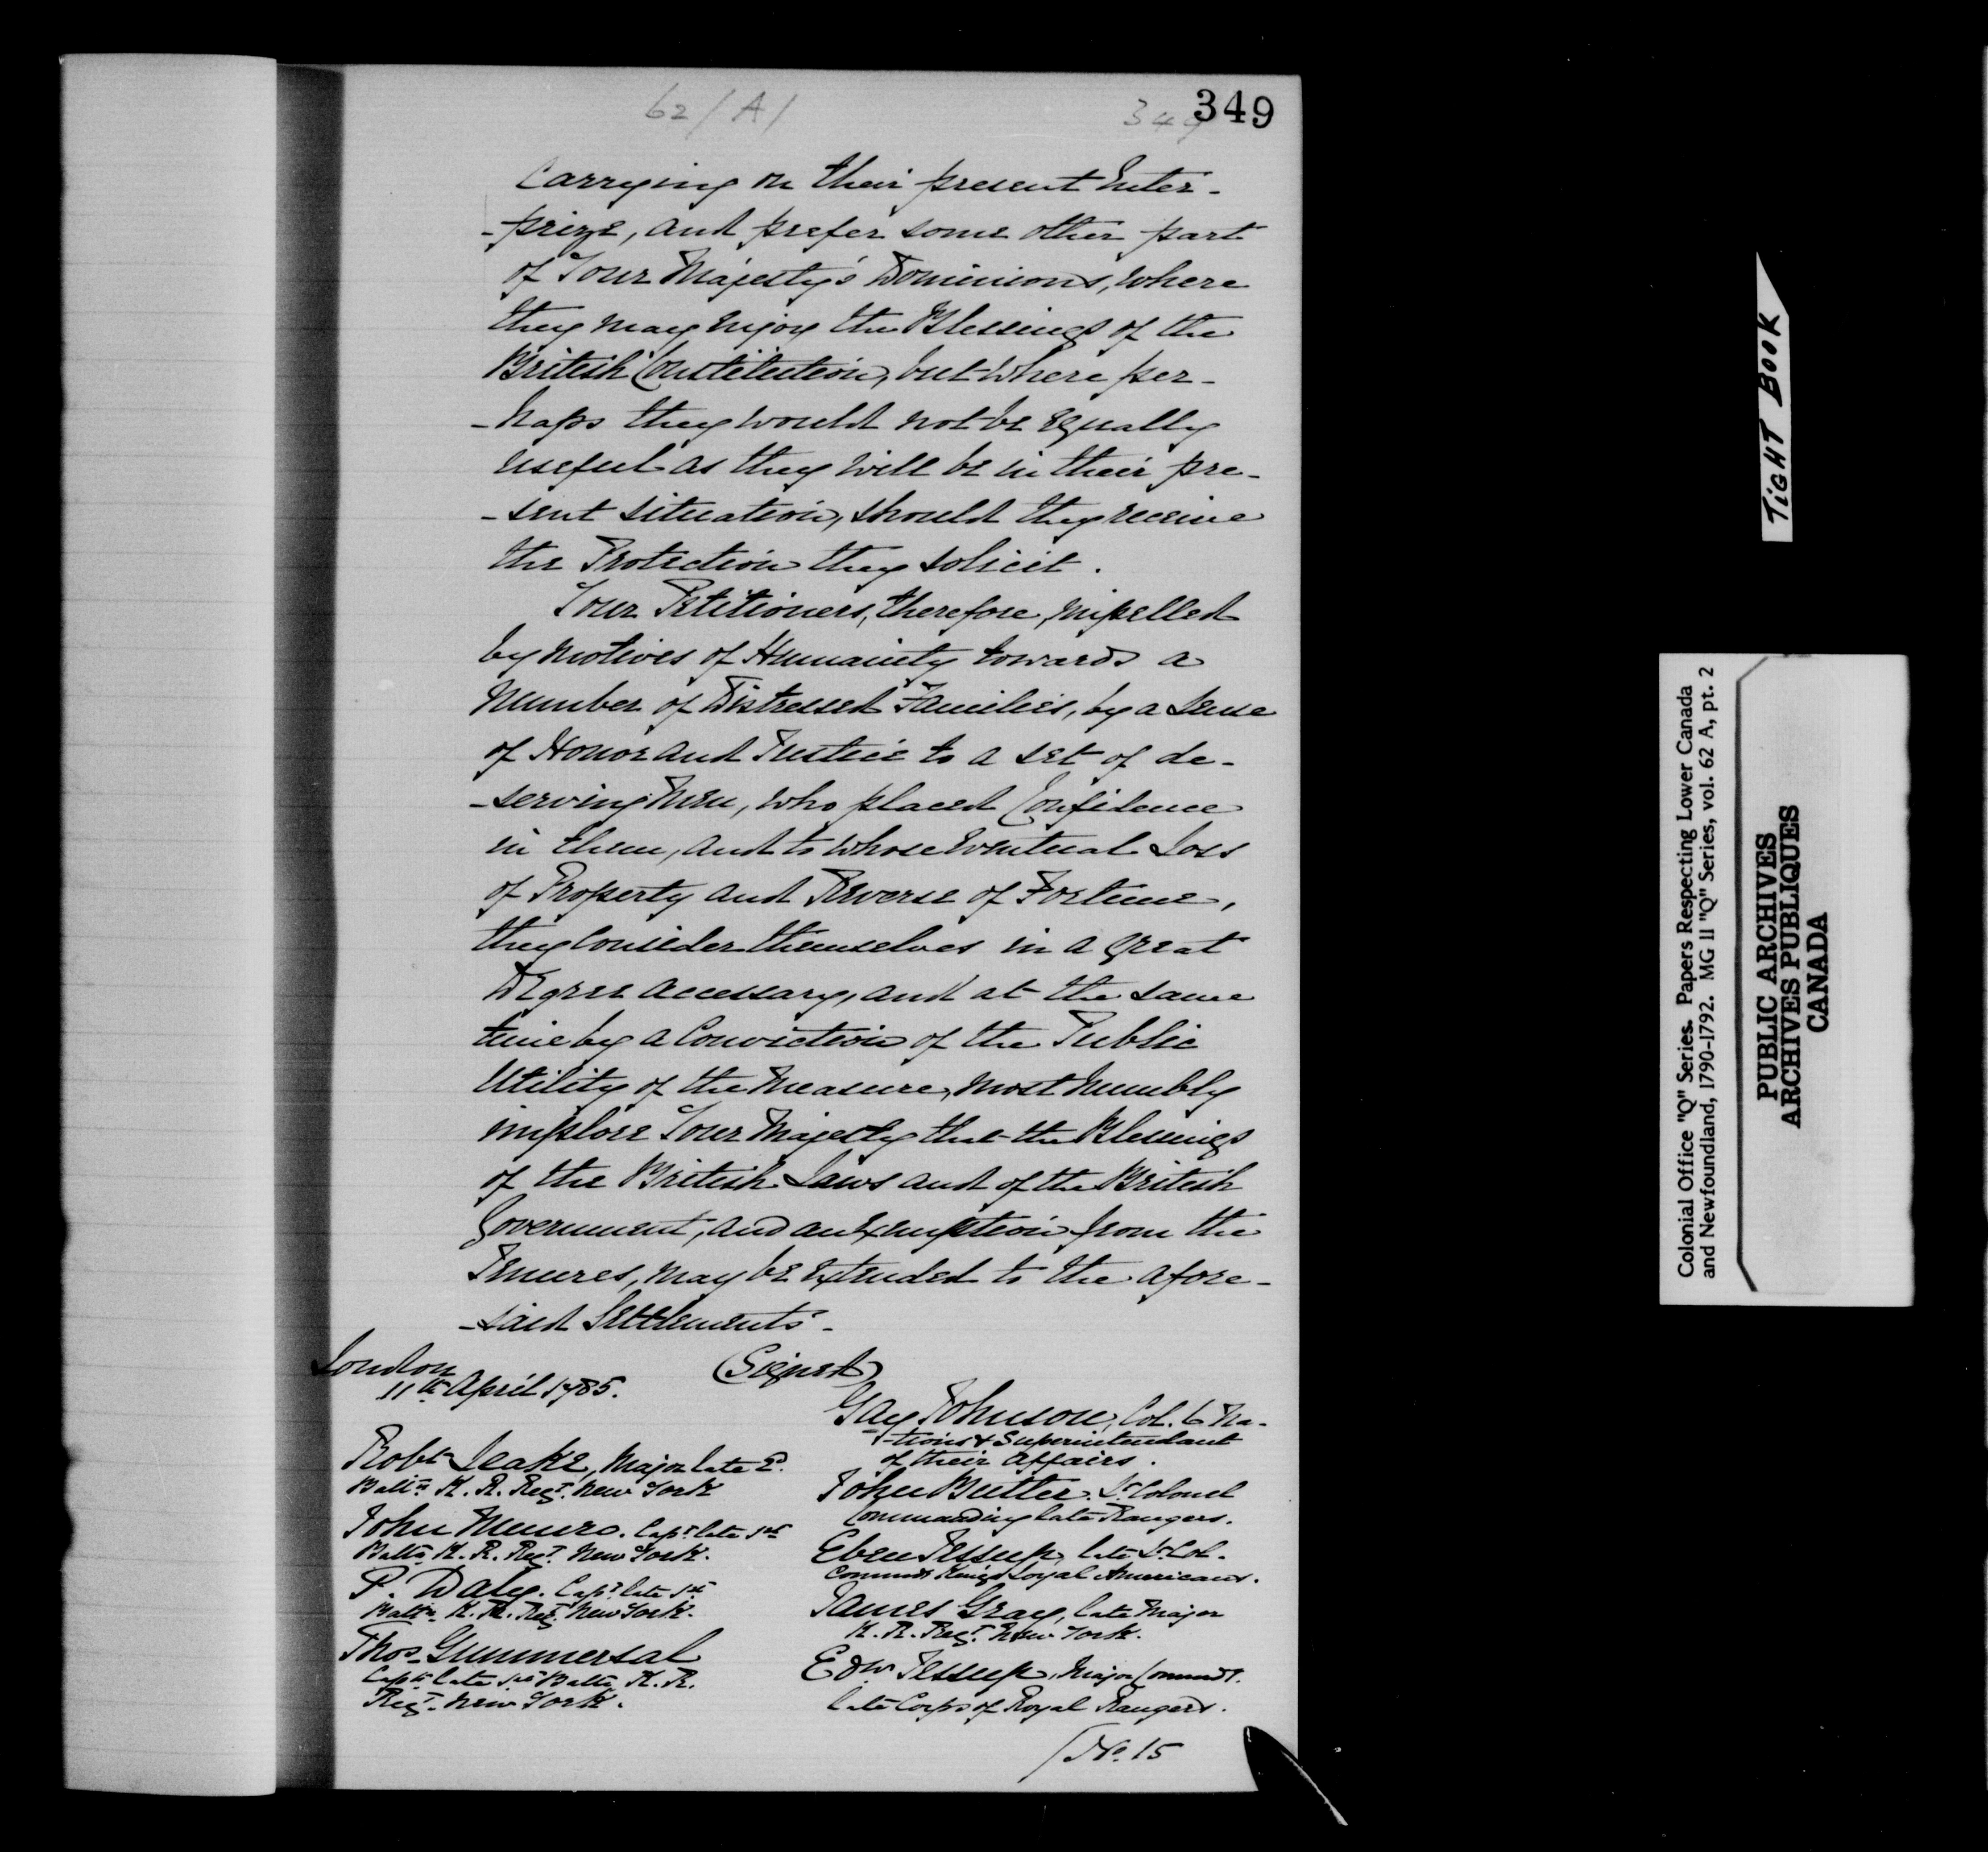 62/A/
349
349
Carrying on their present Enter-
-prize, and prefer some other part
of Your Majesty's Dominions, where
they may enjoy the Blessings of the
British Constitution, but where per-
-haps they would not be equally
useful as they will be in their pre-
-sent situation, should they receive
the Protection they solicit.
Your Petitioners, therefore, impelled
by motives of Humanity towards a
Number of Distressed Families, by a Sense
of Honor and Justice to a set of de-
-serving Men, who placed Confidence
in them, and to whose eventual Loss
of Property and Reverse of Fortune,
they Consider themselves in a great
Degree accessary, and at the same
time by a Conviction of the Public
Utility of the Measure, most humbly
implore Your Majesty that the Blessings
of the British Laws and of the British
Government, and an Exemption from the
Tenures, may be extended to the afore-
-said Settlements.
London
11th April 1785.
(Signed)
Guy Johnson, Col. 6 Na-
-tions & Superintendant
of their Affairs.
John Butler, Lt. Colonel
Commanding late Rangers.
Eben Jessup, late Lt. Col.
Commdt Kings Loyal Americans.
James Gray, late Major
K. R. Regt. New York.
Edw. Jessup, Major Commdt.
late Corps of Royal Rangers.
Robt Leake, Major late 2d.
Battn K. R. Regt. New York
John Munro. Capt. late 1st
Battn K. R. Regt. New York.
P. Daly. Capt. late 1st
Battn K. R. Regt. New York.
Thos. Gummersal
Captn late 1st Battn K. R.
Regt. New York.
/No. 15
TIGHT BOOK
Colonial Office "Q" Series. Papers Respecting Lower Canada
and Newfoundland, 1790-1792. MG 11 "Q" Series, vol. 62 A, pt. 2
PUBLIC ARCHIVES
ARCHIVES PUBLIQUES
CANADA